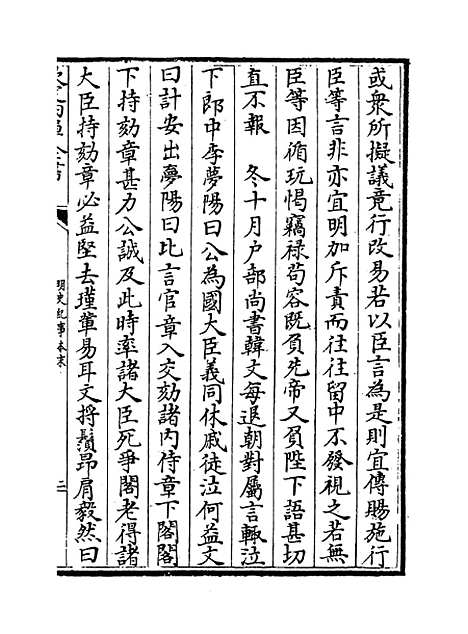 或衆所擬議竟行改易若以臣言為是則宜傳賜施行
臣等言非亦宜明加斥責而往往留中不發視之若無
臣等因循玩愒竊禄苟容既負先帝又負陛下語甚切
直不報　冬十月户部尚書韓文每退朝對屬言輙泣
下郎中李夢陽曰公為國大臣義同休戚徒泣何益文
曰計安出夢陽曰比言官章入交劾諸内侍章下閣閣
下持劾章甚力公誠及此時率諸大臣死爭閣老得諸
大臣持劾章必益堅去瑾軰易耳文捋鬚昂肩毅然曰
明史紀事本末
二